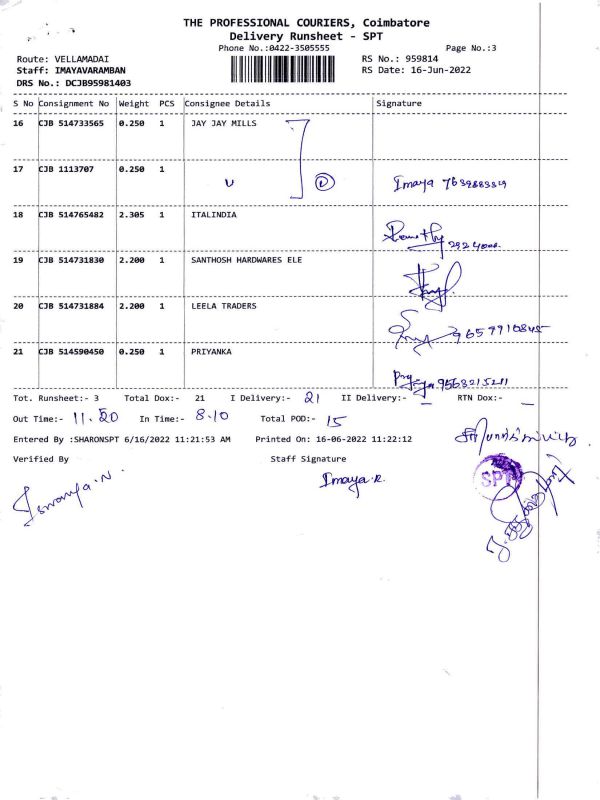 THE PROFESSIONAL COURIERS, Coimbatore
Delivery Runsheet - SPT
Phone No.:0422-3505555 Page No.:3
Route: VELLAMADAI RS No.: 959814
Staff: IMAYAVARAMBAN RS Date: 16-Jun-2022
DRS No.: DCJB95981403
S No Consignment No Weight PCS Consignee Details Signature
16 CJB 514733565 0.250 1 JAY JAY MILLS
17 CJB 1113707 0.250 1 Imaya
18 CJB 514765482 2.305 1 ITALINDIA
19 CJB 514731830 2.200 1 SANTHOSH HARDWARES ELE
20 CJB 514731884 2.200 1 LEELA TRADERS 9659910845
21 CJB 514590450 0.250 1 PRIYANKA
Tot. Runsheet:- 3 Total Dox:- 21 I Delivery:- 21 II Delivery:- — RTN Dox:- —
Out Time:- 11.20 In Time:- 8.10 Total POD:- 15
Entered By :SHARONSPT 6/16/2022 11:21:53 AM Printed On: 16-06-2022 11:22:12
Verified By Staff Signature
Imaya.R.
SPT